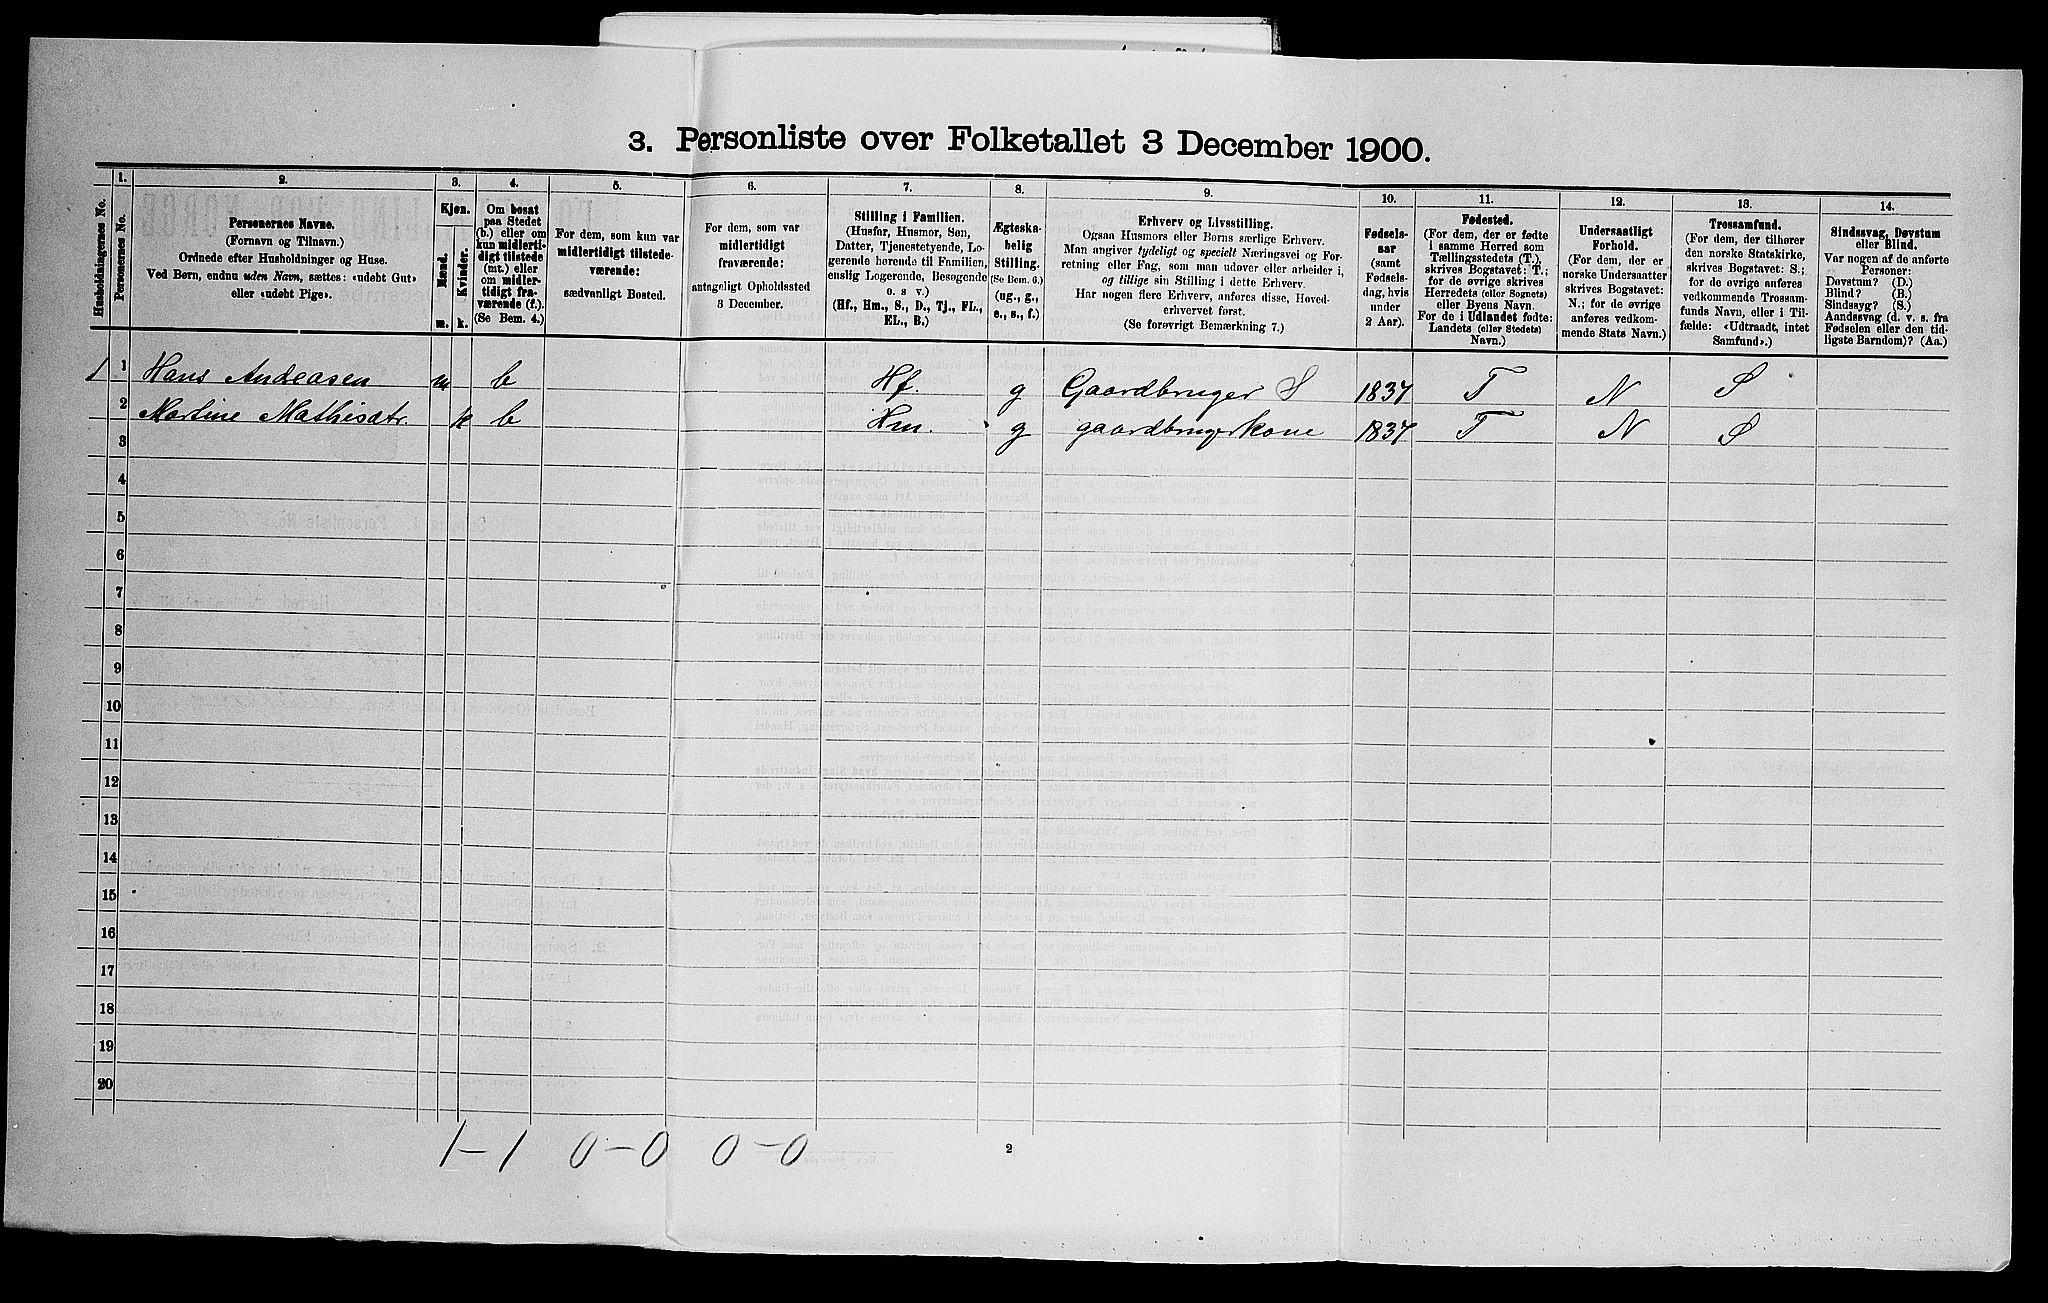 3. Personliste over Folketallet 3 December 1900.
1. 2. 3. 4. 5. 6. 7. 8. 9. 10. 11. 12. 13. 14.
Husholdningernes No.
Personernes No.
Personernes Navne.
(Fornavn og Tilnavn.)
Ordnede efter Husholdninger og Huse.
Ved Børn, endnu uden Navn, sættes: «udøbt Gut»
eller «udøbt Pige».
Kjøn.
Mænd.
Kvinder.
m. k.
Om bosat
paa Stedet
(b.) eller om
kun midlerti-
digt tilstede
(mt.) eller
om midler-
tidigt fra-
værende (f.).
(Se Bem. 4.)
For dem, som kun var
midlertidigt tilstede-
værende:
sædvanligt Bosted.
For dem, som var
midlertidigt
fraværende:
antageligt Opholdssted
3 December.
Stilling i Familien.
(Husfar, Husmor, Søn,
Datter, Tjenestetyende, Lo-
gerende hørende til Familien,
enslig Logerende, Besøgende
o. s v.)
(Hf., Hm., S., D., Tj., FL.,
EL., B.)
Ægteska-
belig
Stilling.
(Se Bem. 6.)
(ug., g.,
e., s., f.)
Erhverv og Livsstilling.
Ogsaa Husmors eller Børns særlige Erhverv.
Man angiver tydeligt og specielt Næringsvei og For-
retning eller Fag, som man udøver eller arbeider i,
og tillige sin Stilling i dette Erhverv.
Har nogen flere Erhverv, anføres disse, Hoved-
erhvervet først.
(Se forøvrigt Bemærkning 7.)
Fødsels-
aar
(samt
Fødsels-
dag, hvis
under
2 Aar).
Fødested.
(For dem, der er fødte
i samme Herred som
Tællingsstedets (T.),
skrives Bogstavet: T.;
for de øvrige skrives
Herredets (eller Sognets)
eller Byens Navn.
For de i Udlandet fødte:
Landets (eller Stedets)
Navn.)
Undersaatligt
Forhold.
(For dem, der er
norske Undersaatter
skrives Bogstavet:
N.; for de øvrige
anføres vedkom-
mende Stats Navn.)
Trossamfund.
(For dem, der tilhører
den norske Statskirke,
skrives Bogstavet: S.;
for de øvrige anføres
vedkommende Trossam-
funds Navn, eller i Til-
fælde: «Udtraadt, intet
Samfund».)
Sindssvag, Døvstum
eller Blind.
Var nogen af de anførte
Personer:
Døvstum? (D.)
Blind? (B.)
Sindssyg? (S.)
Aandssvag (d. v. s. fra
Fødselen eller den tid-
ligste Barndom)? (Aa.)
1 1 Hans Andeasen m b Hf. g Gaardbruger S 1837 T N S
2 Martine Mathisdtr. k b Hm. g gaardbrugerkone 1837 T N S
3
4
5
6
7
8
9
10
11
12
13
14
15
16
17
18
19
20
1-1 0-0 0-0
2